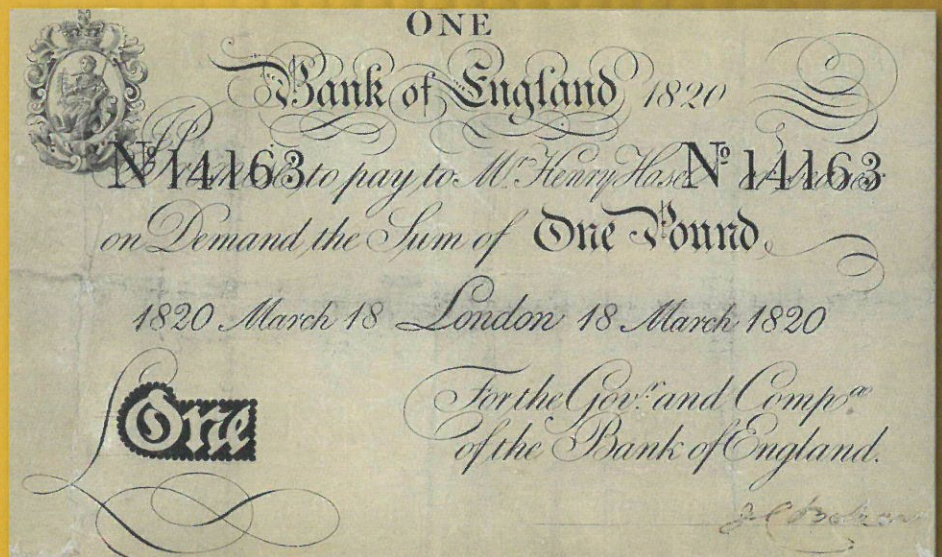 ONE
Bank of England 1820
I Promise to pay to Mr. Henry Hase or bearer
Nº 14163 Nº 14163
on Demand the Sum of One Pound
1820 March 18 London 18 March 1820
£One
For the Govr. and Compa.
of the Bank of England.